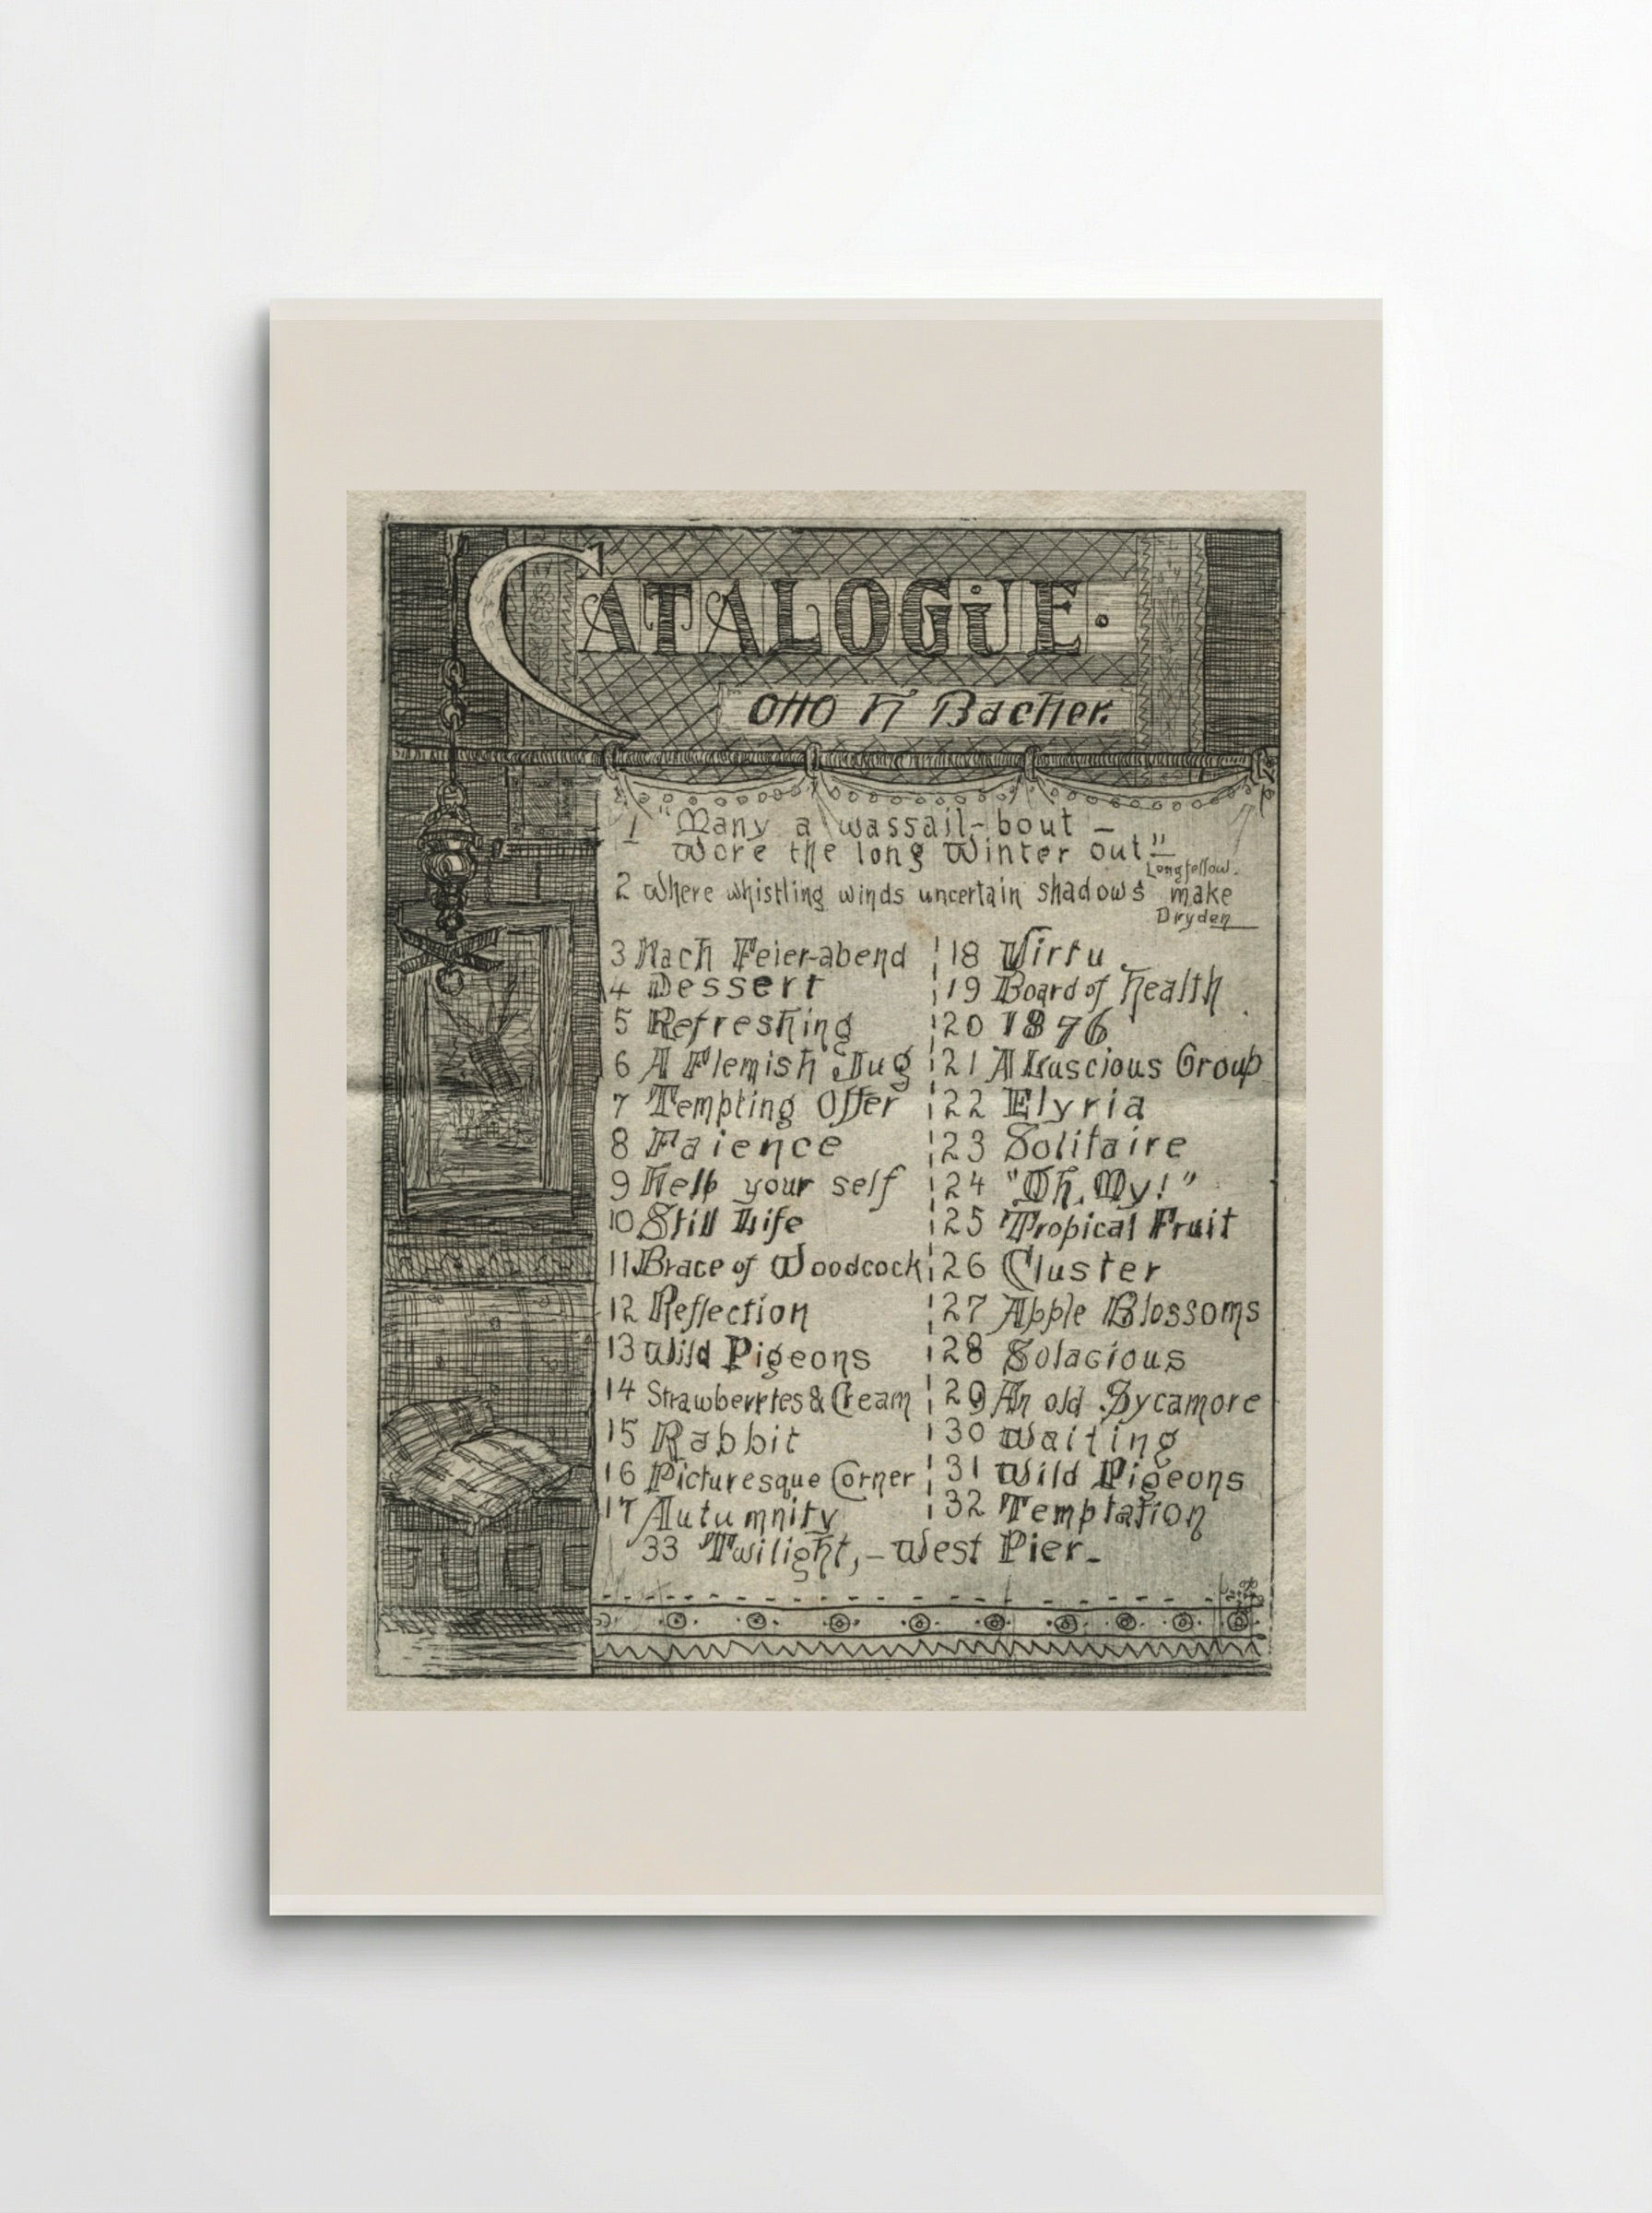 CATALOGUE.
Otto H Bacher.
1 "Many a wassail-bout –
Wore the long Winter out"–
Longfellow.
2 Where whistling winds uncertain shadows make
Dryden
3 Nach Feier-abend
4 Dessert
5 Refreshing
6 A Flemish Jug
7 Tempting Offer
8 Faience
9 Help your self
10 Still Life
11 Brace of Woodcock
12 Reflection
13 Wild Pigeons
14 Strawberries & Cream
15 Rabbit
16 Picturesque Corner
17 Autumnity
18 Virtu
19 Board of Health
20 1876
21 A Luscious Group
22 Elyria
23 Solitaire
24 "Oh, My!"
25 Tropical Fruit
26 Cluster
27 Apple Blossoms
28 Solacious
29 An old Sycamore
30 Waiting
31 Wild Pigeons
32 Temptation
33 Twilight,– West Pier–